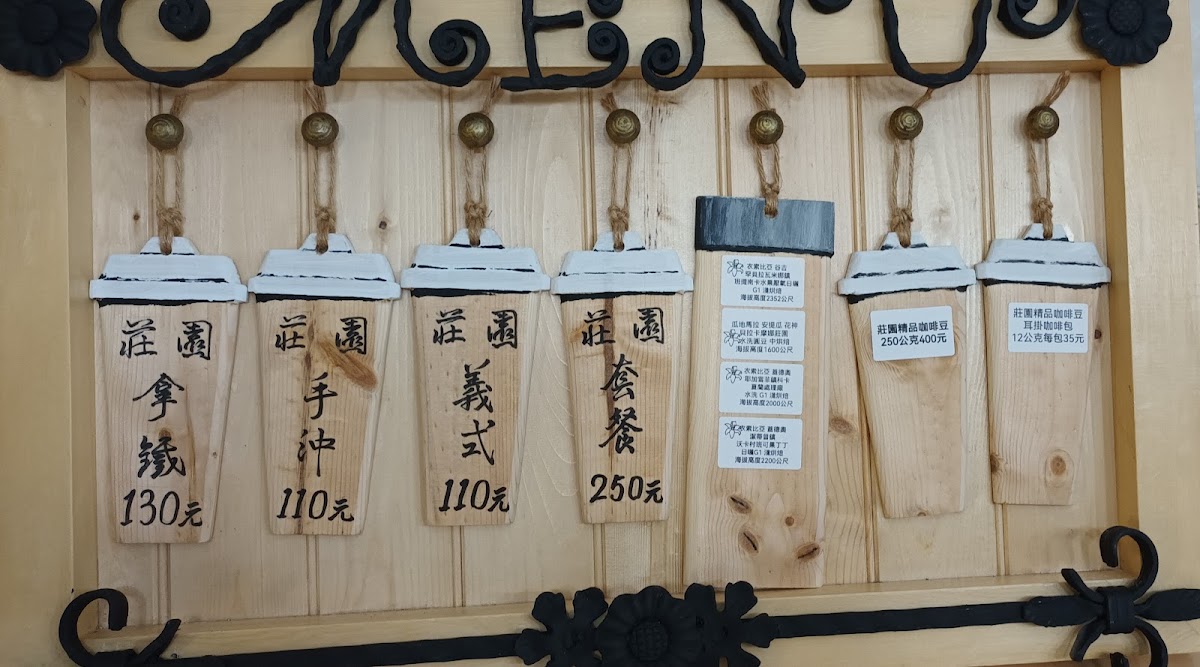 MENU
莊園
拿鐵
130元
莊園
手沖
110元
莊園
義式
110元
莊園
套餐
250元
衣索比亞 谷吉
罕貝拉瓦米娜鎮
班提南卡水果厭氧日曬
G1 淺烘焙
海拔高度2352公尺
瓜地馬拉 安提瓜 花神
貝拉卡摩娜莊園
水洗圓豆 中烘焙
海拔高度1600公尺
衣索比亞 蓋德奧
耶加雪菲鎮科卡
夏蘭處理廠
水洗 G1 淺烘焙
海拔高度2000公尺
衣索比亞 蓋德奧
潔蒂普鎮
沃卡村班可果丁丁
日曬G1 淺烘焙
海拔高度2200公尺
莊園精品咖啡豆
250公克400元
莊園精品咖啡豆
耳掛咖啡包
12公克每包35元